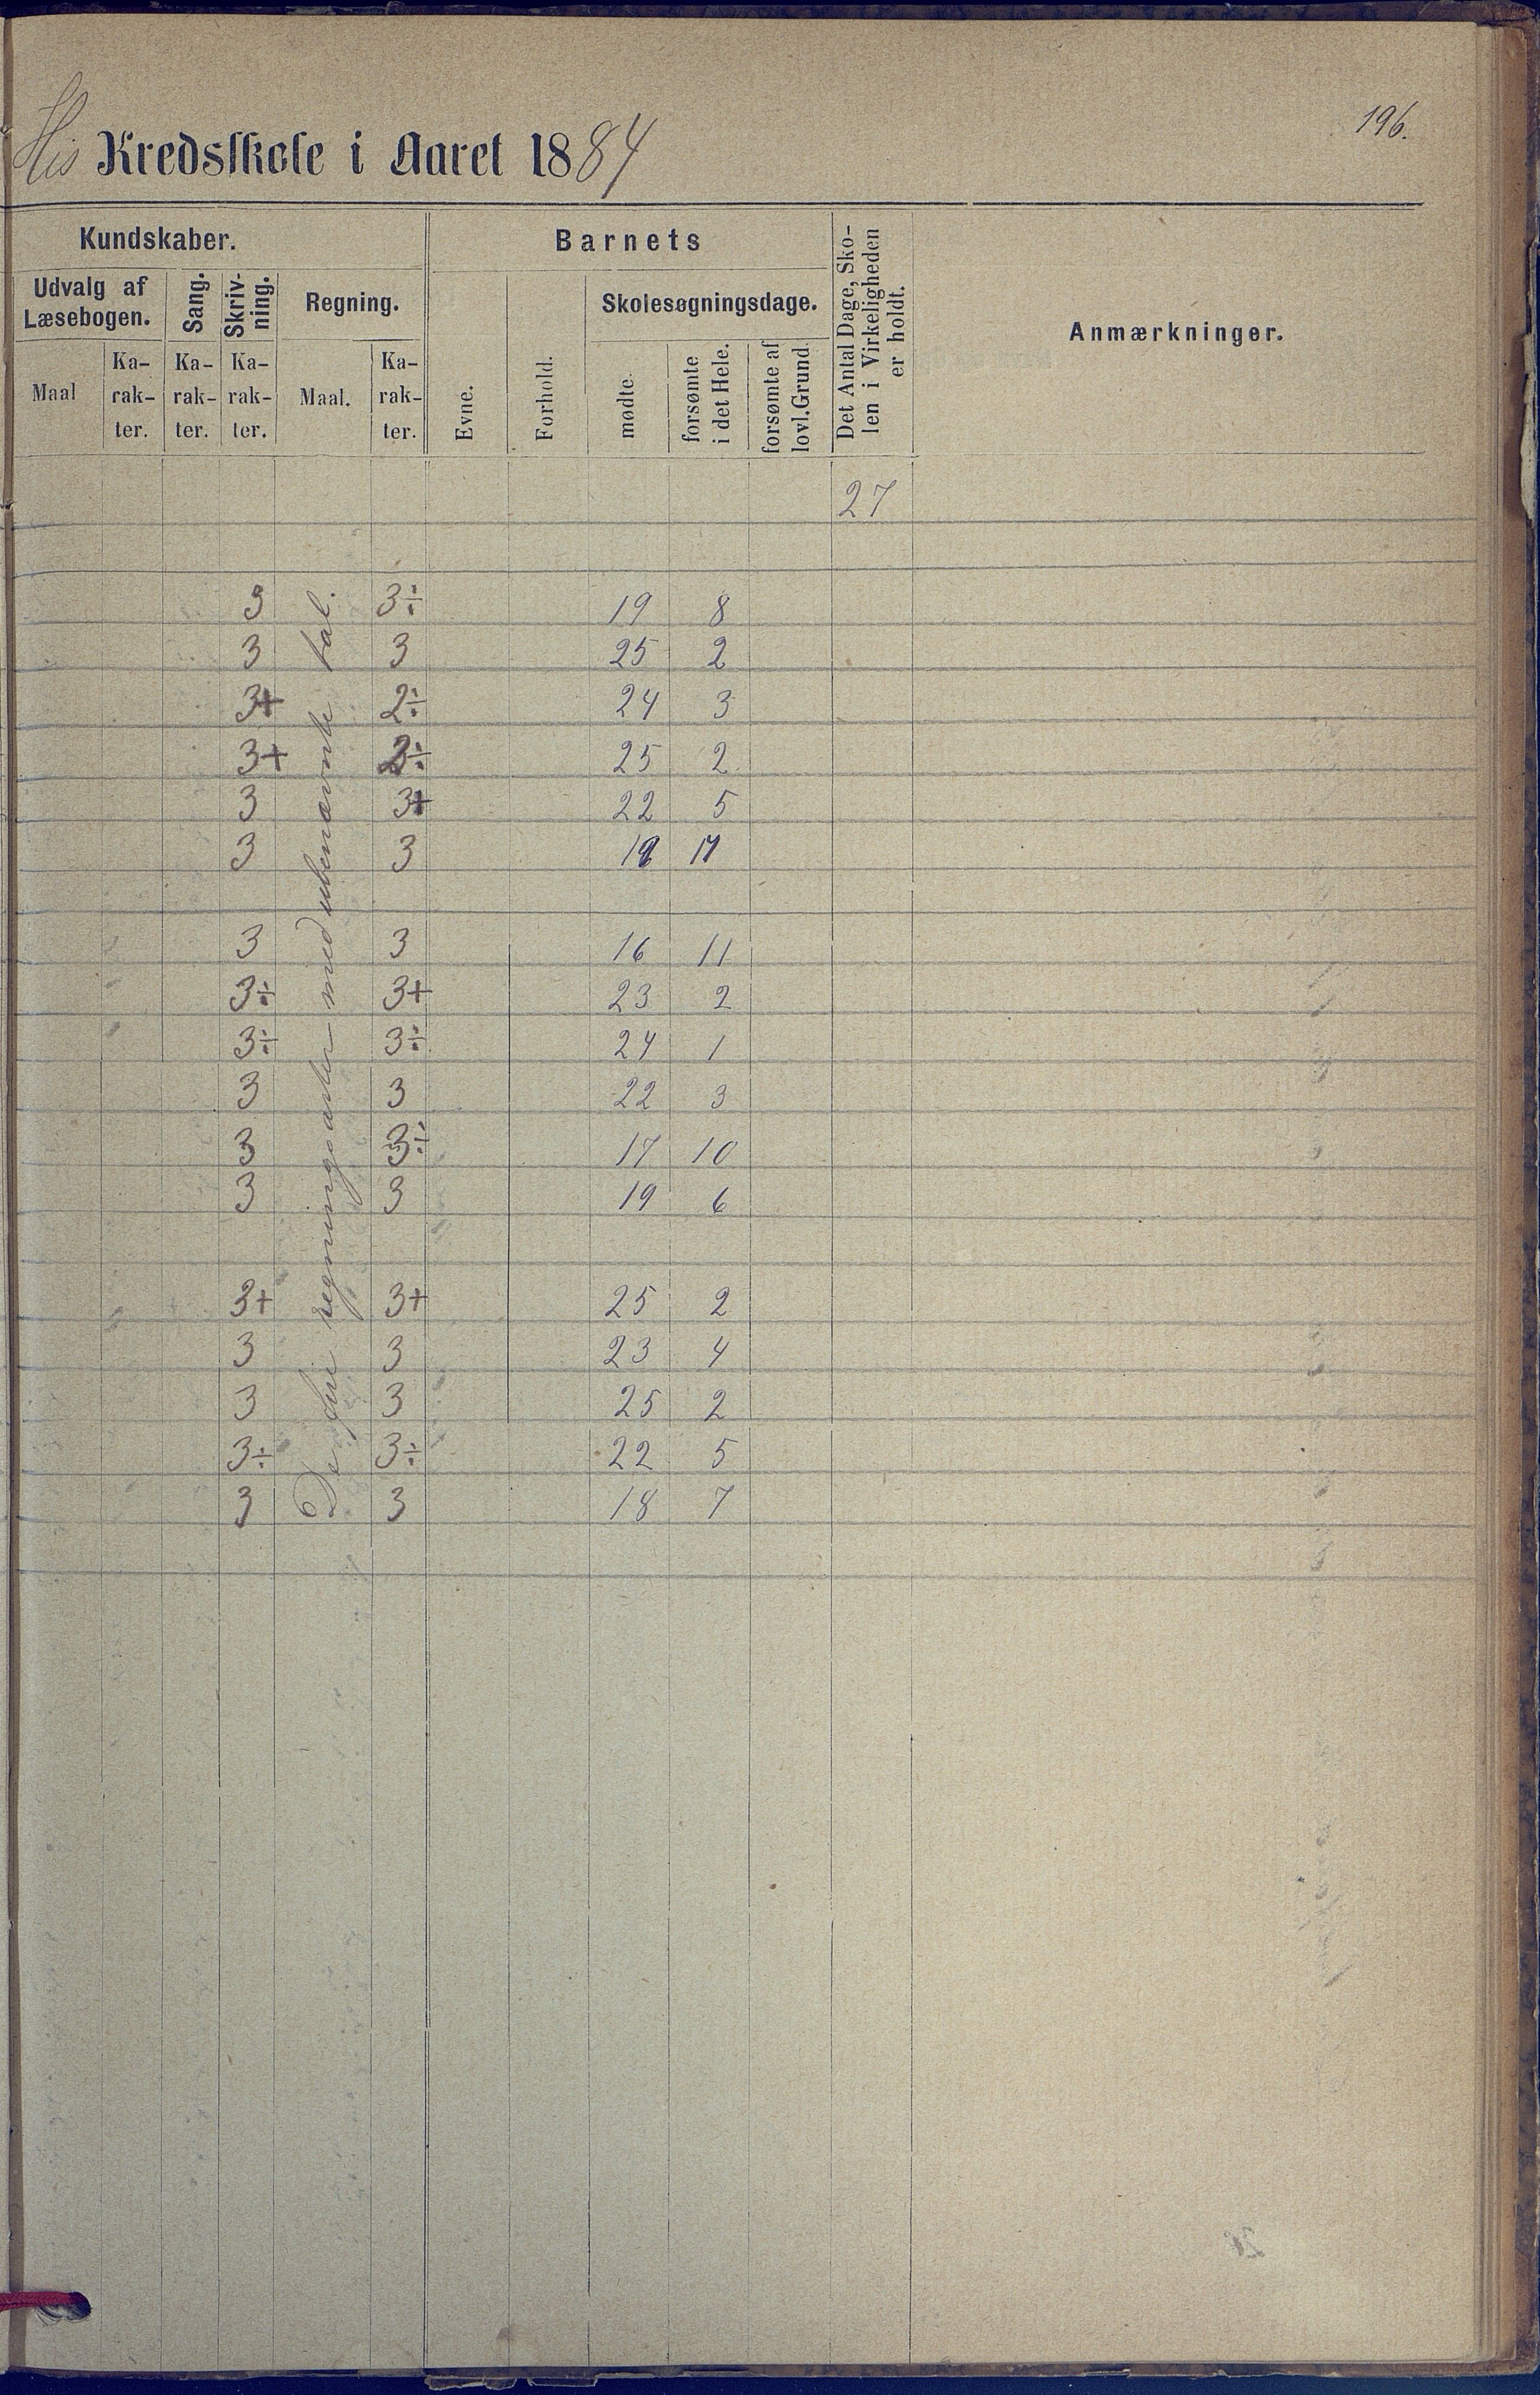 196.
His Kredsskole i Aaret 1884
Kundskaber.
Barnets
Det Antal Dage, Sko-
len i Virkeligheden
er holdt.
Anmærkninger.
Udvalg af
Læsebogen.
Sang.
Skriv-
ning.
Regning.
Skolesøgningsdage.
Maal
Ka-
rak-
ter.
Ka-
rak-
ter.
Ka-
rak-
ter.
Maal.
Ka-
rak-
ter.
Evne.
Forhold.
mødte.
forsømte
i det Hele.
forsømte af
lovl. Grund.
27
De fire regningsarter med ubenævnte tal.
3 3÷ 19 8
3 3 25 2
3+ 2÷ 24 3
3+ 2÷ 25 2
3 3+ 22 5
3 3
3 3 16 11
3÷ 3+ 23 2
3÷ 3÷ 24 1
3 3 22 3
3 3÷ 17 10
3 3 19 6
3+ 3+ 25 2
3 3 23 4
3 3 25 2
3÷ 3÷ 22 5
3 3 18 7